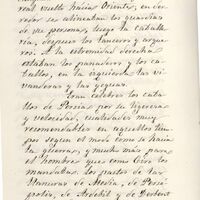 real vuelto hácia Oriente, en derre-
dor se estimaban los guardias
de su persona, luego la caballe-
ria, despues los lanceros y arque-
ros. A la estremidad derecha
estaban los panaderos y los ca-
ballos, en la izquierda las vi-
vanderas y las yeguas.
Eran celebres los caba-
llos de Persia por su ligereza
y velocidad, cualidades muy
recomendables en aquellos tiem-
pos segun el modo como se hacia
la guerra, y mucho más para
el hombre que como Ciro los
mandaba. Los pastos de las
llanuras de Media, de
de Ardebil y de Derbent